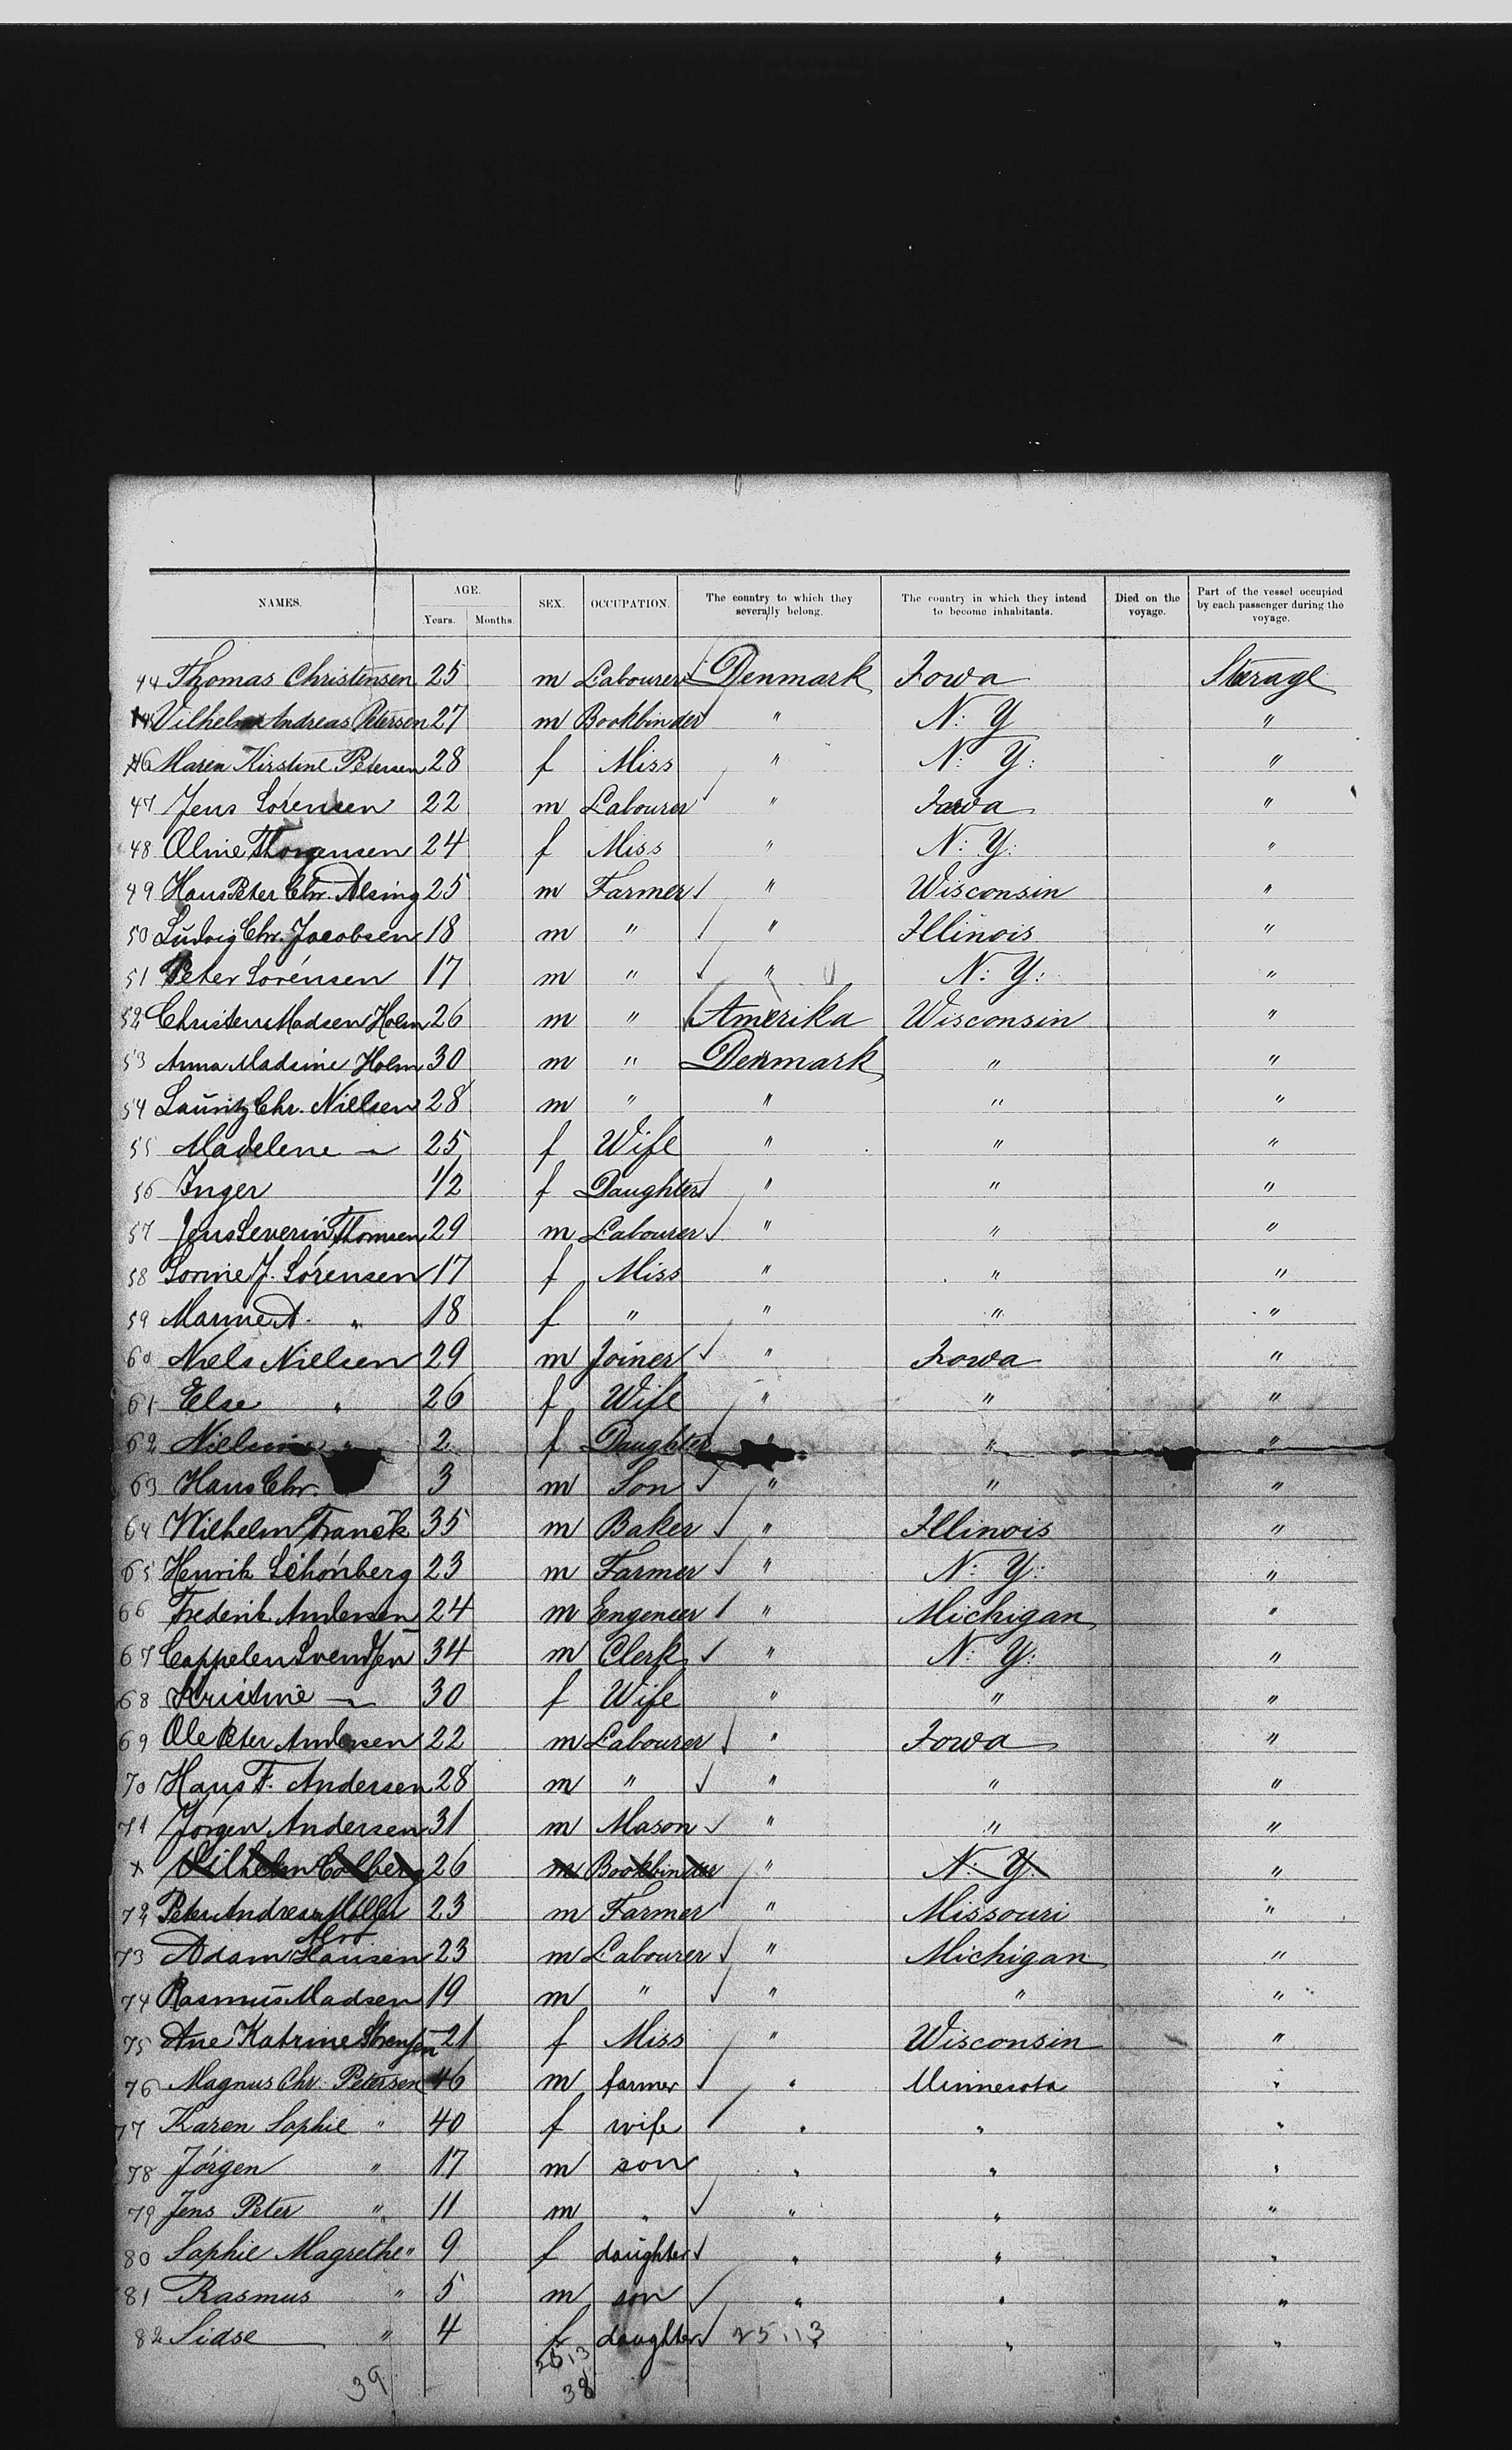 NAMES. AGE. SEX. OCCUPATION. The country to which they severally belong. The country in which they intend to become inhabitants. Died on the voyage. Part of the vessel occupied by each passenger during the voyage.
Years. Months.
44 Thomas Christensen 25 m Labourer Denmark Iowa Steerage
45 Vilhelm Andreas Petersen 27 m Bookbinder " N: Y "
46 Maren Kirstine Petersen 28 f Miss " N: Y: "
47 Jens Sörensen 22 m Labourer " Iowa "
48 Oline Thorgensen 24 f Miss " N: Y: "
49 Hans Peter Chr. Alsing 25 m Farmer " Wisconsin "
50 Ludvig Chr. Jacobsen 18 m " " Illinois "
51 Peter Sorénsen 17 m " " N: Y: "
52 Christen Madsen Holm 26 m " Amerika Wisconsin "
53 Anna Madsine Holm 30 m " Denmark " "
54 Lauritz Chr. Nielsen 28 m " " " "
55 Madelene " 25 f Wife " " "
56 Inger 1/2 f Daughter " " "
57 Jens Severin Thomsen 29 m Labourer " " "
58 Sorine J. Sörensen 17 f Miss " " "
59 Marine A. " 18 f " " " "
60 Niels Nielsen 29 m Joiner " Iowa "
61 Else " 26 f Wife " " "
62 Nielsine " 2 f Daughter " " "
63 Hans Chr. 3 m Son " " "
64 Wilhelm Franck 35 m Baker " Illinois "
65 Henrik Schönberg 23 m Farmer " N: Y: "
66 Frederik Andersen 24 m Engeneer " Michigan "
67 Cappelen Svendsen 34 m Clerk " N: Y: "
68 Kristine " 30 f Wife " " "
69 Ole Peter Andersen 22 m Labourer " Iowa "
70 Hans F. Andersen 28 m " " " "
71 Jörgen Andersen 31 m Mason " " "
x Vilhelm Colberg 26 m Bookbinder " N: Y: "
72 Peter Andreas Möller 23 m Farmer " Missouri "
73 Adam Hansen 23 m Labourer " Michigan "
74 Rasmus Madsen 19 m " " " "
75 Ane Katrine Sörensen 21 f Miss " Wisconsin "
76 Magnus Chr. Petersen 46 m farmer " Minnesota "
77 Karen Sophie " 40 f wife " " "
78 Jörgen " 17 m son " " "
79 Jens Peter " 11 m " " " "
80 Sophie Magrethe " 9 f daughter " " "
81 Rasmus " 5 m son " " "
82 Sidse " 4 f daughter 25 13 " "
25 13
39 38